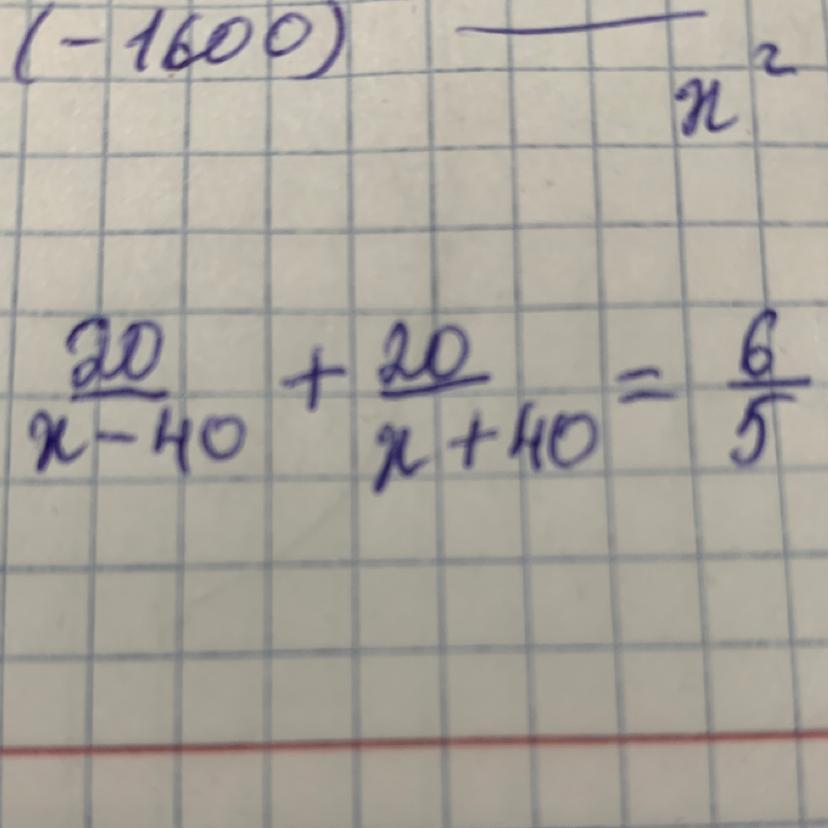 (-1600) ——— x²
20/(x-40) + 20/(x+40) = 6/5